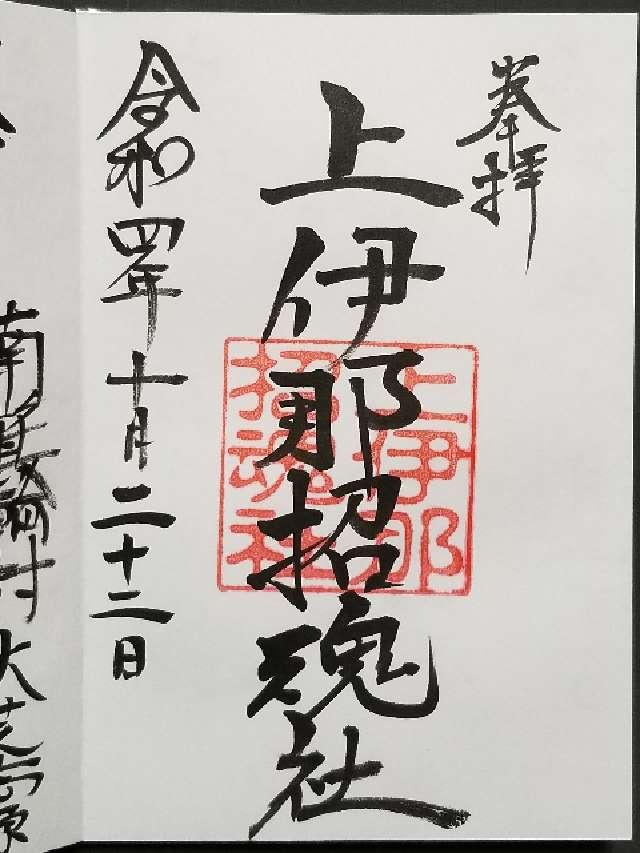 奉拝
上伊那招魂社
上伊那
招魂社
令和四年十月二十二日
南箕輪村大芝高原